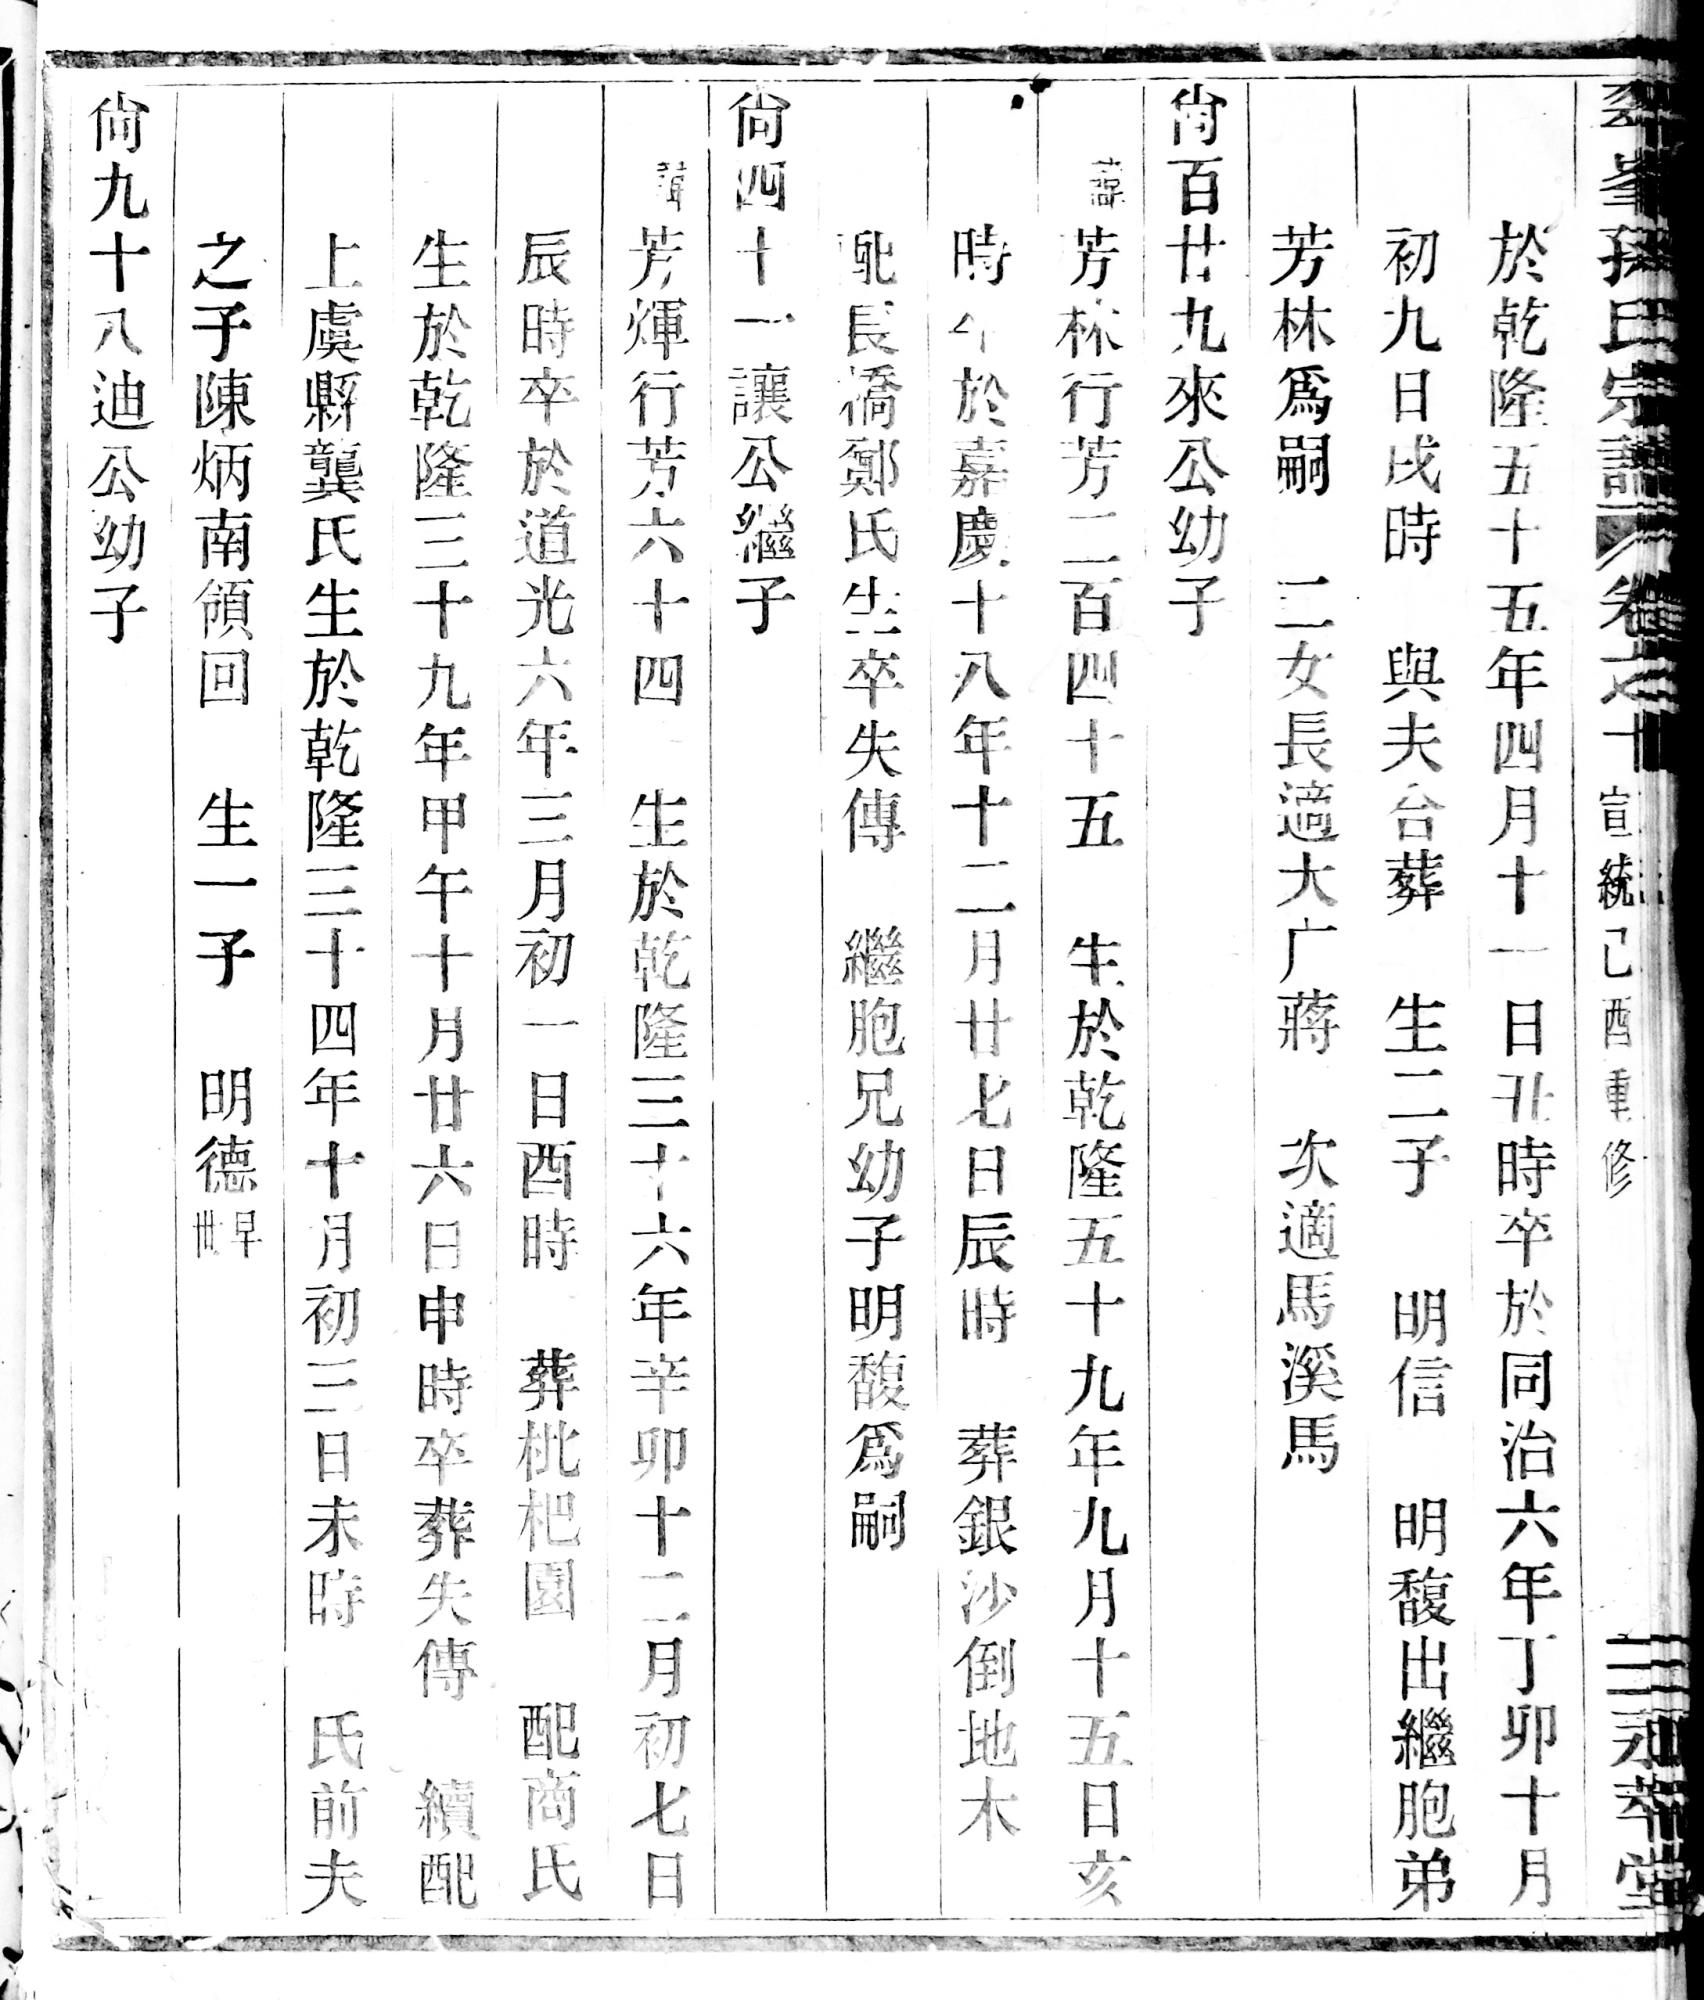 孫氏宗譜 卷之十 宣統己酉重修 永萃堂
於乾隆五十五年四月十一日丑時卒於同治六年丁卯十月
初九日戌時 與夫合葬 生二子 明信 明馥出繼胞弟
芳林爲嗣 二女長適大广蔣 次適馬溪馬
尙百廿九來公幼子
諱芳林行芳二百四十五 生於乾隆五十九年九月十五日亥
時卒於嘉慶十八年十二月廿七日辰時 葬銀沙倒地木
配長橋鄭氏生卒失傳 繼胞兄幼子明馥爲嗣
尙四十一讓公繼子
諱芳煇行芳六十四 生於乾隆三十六年辛卯十二月初七日
辰時卒於道光六年三月初一日酉時 葬枇杷園 配商氏
生於乾隆三十九年甲午十月廿六日申時卒葬失傳 續配
上虞縣龔氏生於乾隆三十四年十月初三日未時 氏前夫
之子陳炳南領回 生一子 明德早世
尙九十八迪公幼子